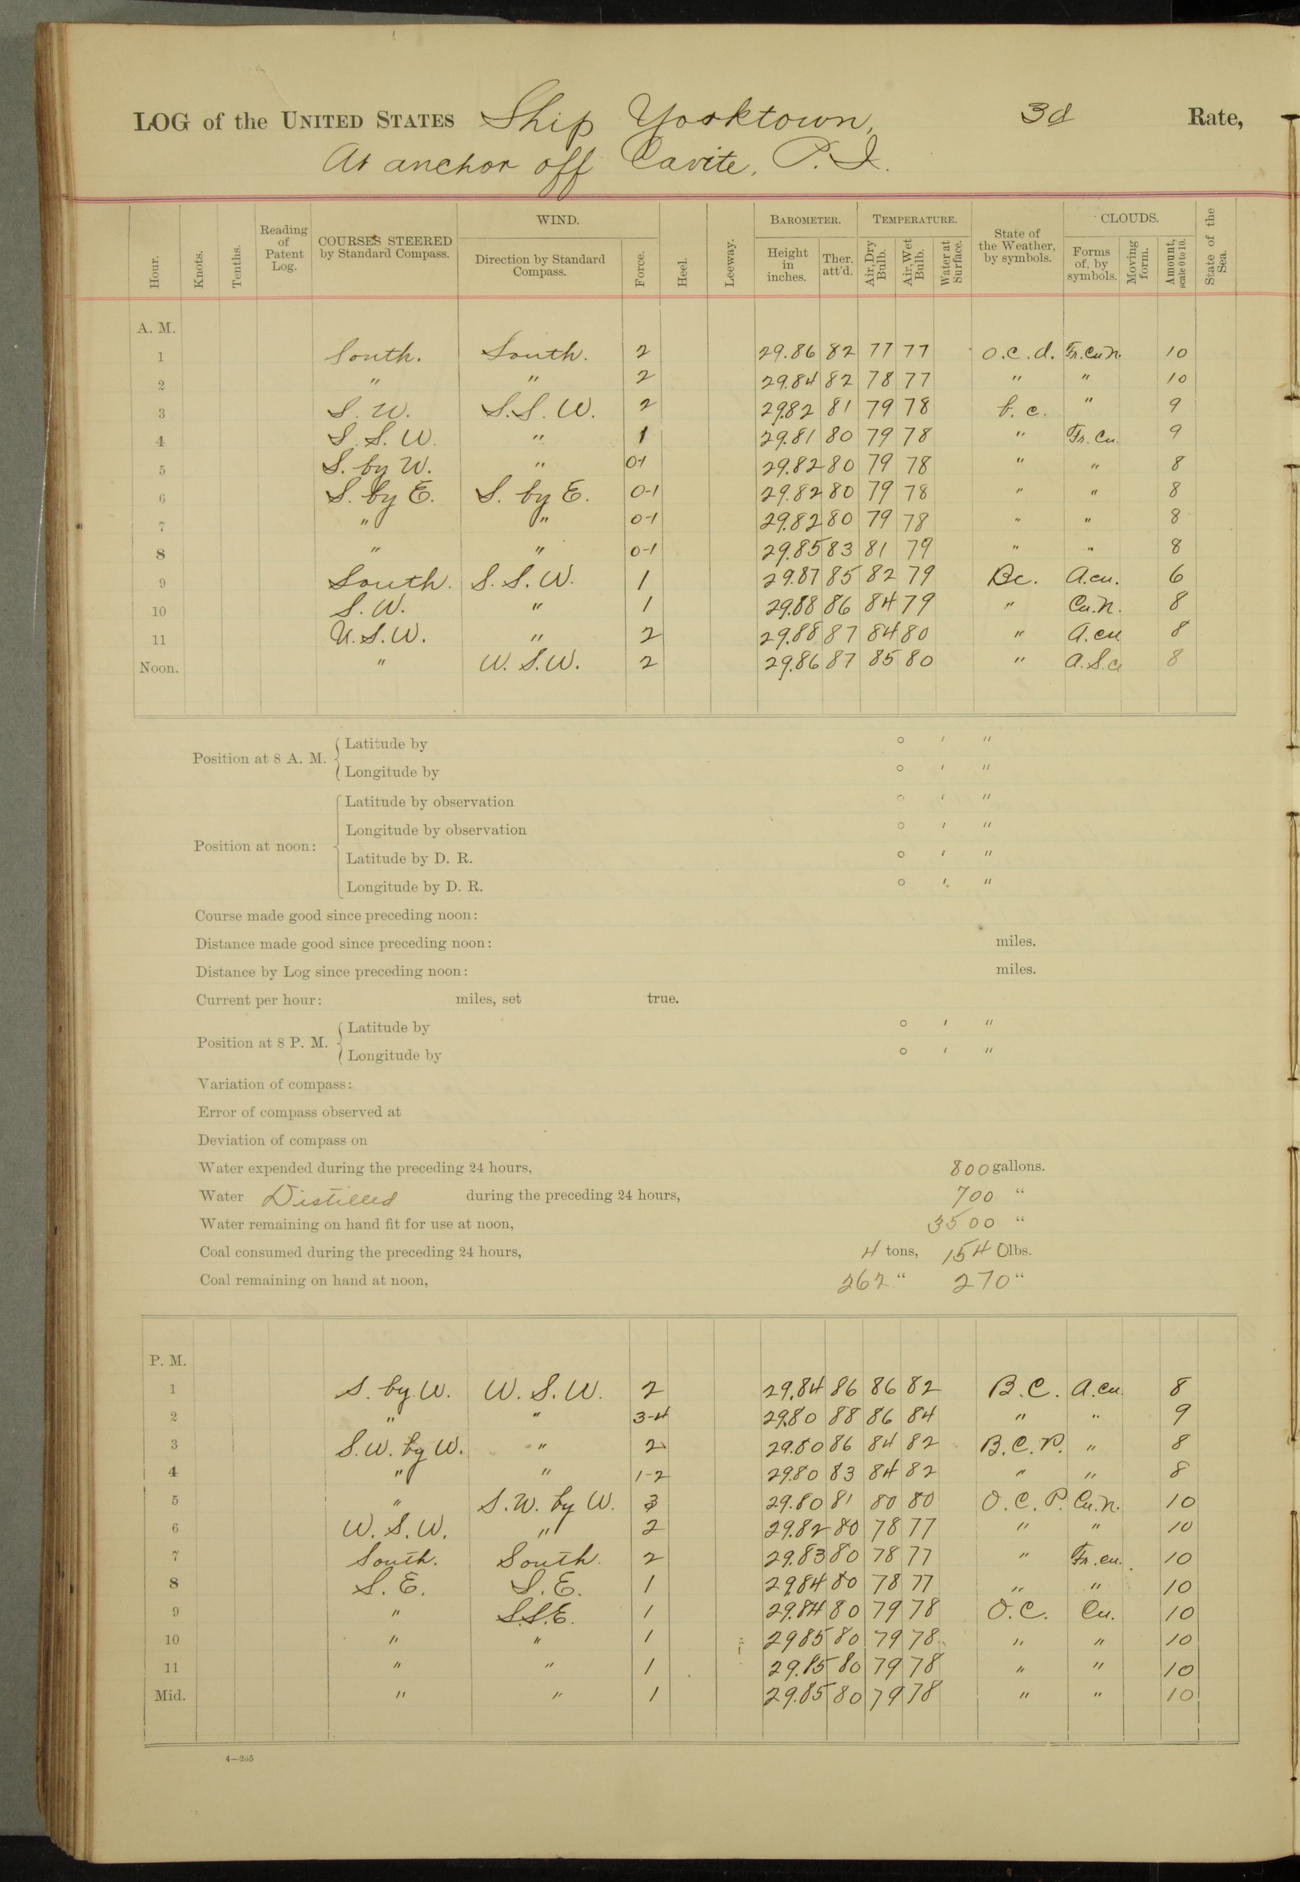 LOG of the UNITED STATES Ship Yorktown, 3d Rate,
At anchor off Cavite, P.I.
Hour. Knots. Tenths. Reading of Patent Log. COURSES STEERED by Standard Compass. WIND. Direction by Standard Compass. Force. Heel. Leeway. BAROMETER. Height in inches. Ther. att'd. TEMPERATURE. Air, Dry Bulb. Air, Wet Bulb. Water at Surface. State of the Weather, by symbols. CLOUDS. Forms of, by symbols. Moving form. Amount, scale 0 to 10. State of the Sea.
A. M.
1 South. South. 2 29.86 82 77 77 O.c.d. Fr.cu.n. 10
2 " " 2 29.84 82 78 77 " " 10
3 S.W. S.S.W. 2 29.82 81 79 78 b.c. " 9
4 S.S.W. " 1 29.81 80 79 78 " Fr.cu. 9
5 S. by W. " 0-1 29.82 80 79 78 " " 8
6 S. by E. S. by E. 0-1 29.82 80 79 78 " " 8
7 " " 0-1 29.82 80 79 78 " " 8
8 " " 0-1 29.85 83 81 79 " " 8
9 South. S.S.W. 1 29.87 85 82 79 Bc. A.cu. 6
10 S.W. " 1 29.88 86 84 79 " Cu.n. 8
11 W.S.W. " 2 29.88 87 84 80 " A.cu 8
Noon. " W.S.W. 2 29.86 87 85 80 " A.S.c 8
Position at 8 A. M. Latitude by ° ′ ″
Longitude by ° ′ ″
Position at noon: Latitude by observation ° ′ ″
Longitude by observation ° ′ ″
Latitude by D. R. ° ′ ″
Longitude by D. R. ° ′ ″
Course made good since preceding noon:
Distance made good since preceding noon: miles.
Distance by Log since preceding noon: miles.
Current per hour: miles, set true.
Position at 8 P. M. Latitude by ° ′ ″
Longitude by ° ′ ″
Variation of compass:
Error of compass observed at
Deviation of compass on
Water expended during the preceding 24 hours, 800 gallons.
Water Distilled during the preceding 24 hours, 700 "
Water remaining on hand fit for use at noon, 3500 "
Coal consumed during the preceding 24 hours, 4 tons, 1540 lbs.
Coal remaining on hand at noon, 262 " 270 "
P. M.
1 S. by W. W.S.W. 2 29.84 86 86 82 B.C. A.cu. 8
2 " " 3-4 29.80 88 86 84 " " 9
3 S.W. by W. " 2 29.80 86 84 82 B.C.P. " 8
4 " " 1-2 29.80 83 84 82 " " 8
5 " S.W. by W. 3 29.80 81 80 80 O.C.P. Cu.n. 10
6 W.S.W. " 2 29.82 80 78 77 " " 10
7 South. South. 2 29.83 80 78 77 " Fr.cu. 10
8 S.E. S.E. 1 29.84 80 78 77 " " 10
9 " S.S.E. 1 29.84 80 79 78 O.C. Cu. 10
10 " " 1 29.85 80 79 78 " " 10
11 " " 1 29.85 80 79 78 " " 10
Mid. " " 1 29.85 80 79 78 " " 10
4—265